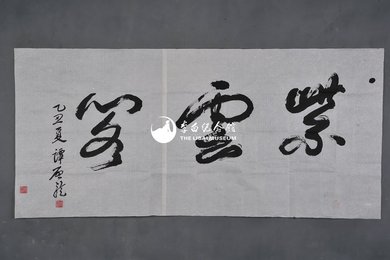 紫雲閣
乙丑夏 譚啟龍
李白纪念馆
THE LIBAI MUSEUM